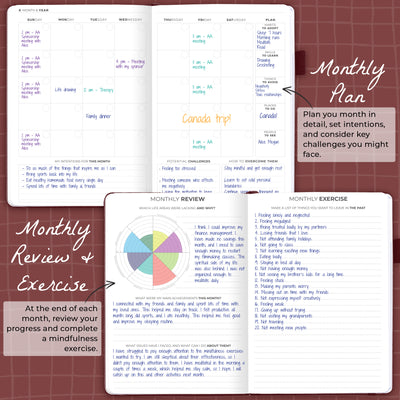 A MONTH & YEAR
SUNDAY
MONDAY
TUESDAY
WEDNESDAY
THURSDAY
FRIDAY
SATURDAY
PLAN
HABITS
TO ADOPT
Sleep 7 hours
Morning runs
Meatball
Read
SKILLS
TO LEARN
Drawing
Crocheting
THINGS
TO AVOID
Negativity
Coffee
Toxic relationships
PLACES
TO GO
Canada!
PEOPLE
TO SEE
Alex, Megan
2 pm - AA
Sponsorship
meeting with
Alex
1 am - AA
meeting
4 pm - Meeting
with my sponsor
Life drawing
2 am - Therapy
Family dinner
Canada trip!
MY INTENTIONS FOR THIS MONTH
- Do as much of the things that inspire me, as I can
- Bring sports back into my life
- Eat healthy homemade food every single day
- Spend lots of time with family & friends
POTENTIAL CHALLENGES
Feeling stressed
Meeting someone who affects
me negatively
HOW TO OVERCOME THEM
Stay mindful and get enough rest
Learn to set solid personal
boundaries
Monthly
Plan
Plan you month in
detail, set intentions,
and consider key
challenges you might
face.
Monthly
Review &
Exercise
At the end of each
month, review your
progress and complete
a mindfulness
exercise.
MONTHLY REVIEW
WHICH LIFE AREAS WERE LACKING AND WHY?
I think I could improve my
finance management. I
have made no savings this
month, and I need to save
enough money to restart
my filmmaking classes. The
spiritual side of my life
was also behind. I was not
organized enough to
meditate daily.
WHAT WERE MY MAIN ACHIEVEMENTS THIS MONTH?
I connected with my friends and family and spent lots of time with
my loved ones. This helped me stay on track. I felt productive all
month long, did sports, and I ate healthily. This helped me feel good
and improve my sleeping routine.
WHAT ISSUES HAVE I FACED AND WHAT CAN I DO ABOUT THEM?
I have struggled to pay enough attention to the mindfulness exercises.
I wanted to try. I am still skeptical about their effectiveness, so I
didn't pay enough attention to them. I have meditated in the morning a
couple of times a week, which helped me stay calm, so I hope I will
catch up on this and other activities next month.
MONTHLY EXERCISE
MAKE A LIST OF THINGS YOU WANT TO LEAVE IN THE PAST
1. Feeling lonely and neglected
2. Feeling misjudged
3. Being treated badly by my partners
4. Losing friends that I love
5. Not attending family holidays
6. Not going to casts
7. Not learning exciting new things
8. Eating badly
9. Staying in bed all day
10. Not having enough money
11. Not seeing my brother's kids for a long time
12. Feeling stuck
13. Making my parents worry
14. Missing out on time with my friends
15. Not expressing myself creatively
16. Feeling weak
17. Giving up without trying
18. Not visiting my grandparents
19. Not traveling
20. Not meeting new people